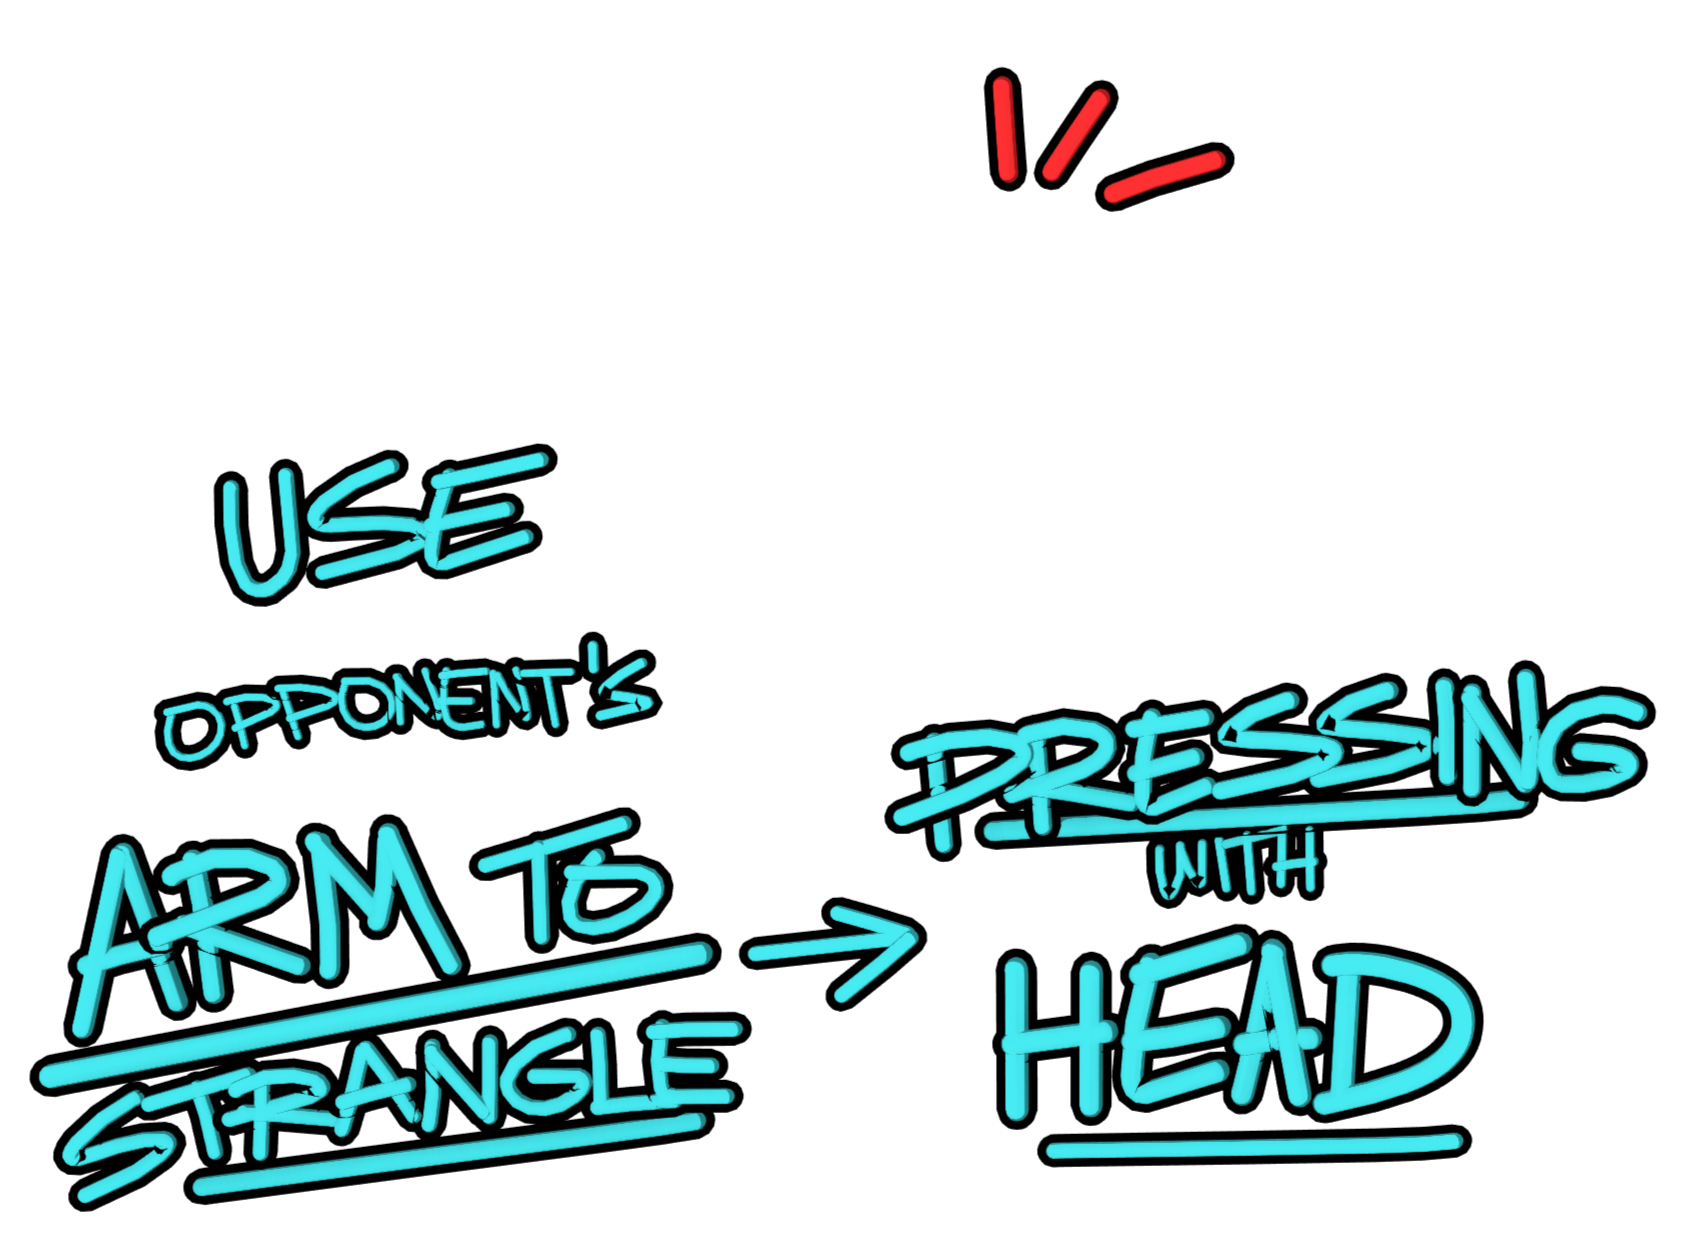 USE
OPPONENT'S
ARM TO
STRANGLE
→
PRESSING
WITH
HEAD